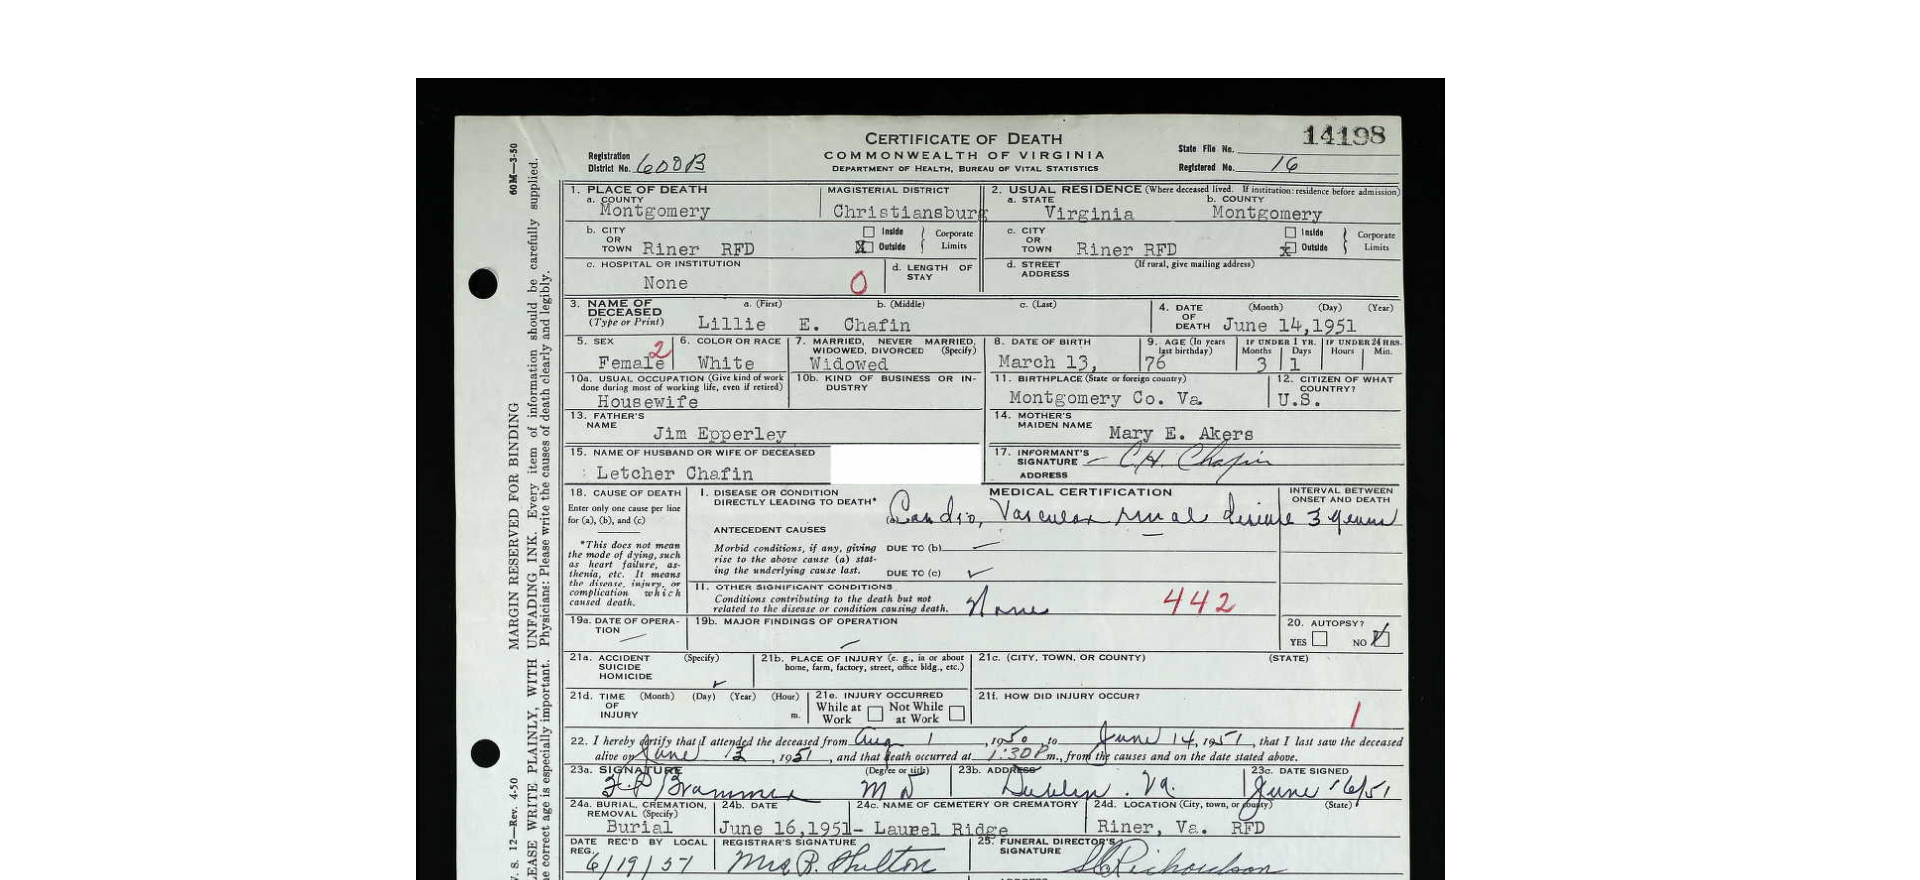 CERTIFICATE OF DEATH
14198
COMMONWEALTH OF VIRGINIA
DEPARTMENT OF HEALTH, BUREAU OF VITAL STATISTICS
Registration District No. 600B
State File No.
Registered No. 16
1. PLACE OF DEATH
a. COUNTY Montgomery
MAGISTERIAL DISTRICT Christiansburg
2. USUAL RESIDENCE (Where deceased lived. If institution: residence before admission)
a. STATE Virginia
b. COUNTY Montgomery
b. CITY OR TOWN Riner RFD
Inside
X Outside
Corporate Limits
c. CITY OR TOWN Riner RFD
Inside
X Outside
Corporate Limits
c. HOSPITAL OR INSTITUTION None 0
d. LENGTH OF STAY
d. STREET ADDRESS (If rural, give mailing address)
3. NAME OF DECEASED (Type or Print)
a. (First) b. (Middle) c. (Last)
Lillie E. Chafin
4. DATE OF DEATH (Month) (Day) (Year)
June 14,1951
5. SEX Female 2
6. COLOR OR RACE White
7. MARRIED, NEVER MARRIED, WIDOWED, DIVORCED (Specify) Widowed
8. DATE OF BIRTH March 13,
9. AGE (In years last birthday) 76
IF UNDER 1 YR. Months 3 Days 1
IF UNDER 24 HRS. Hours Min.
10a. USUAL OCCUPATION (Give kind of work done during most of working life, even if retired) Housewife
10b. KIND OF BUSINESS OR INDUSTRY
11. BIRTHPLACE (State or foreign country) Montgomery Co. Va.
12. CITIZEN OF WHAT COUNTRY? U.S.
13. FATHER'S NAME Jim Epperley
14. MOTHER'S MAIDEN NAME Mary E. Akers
15. NAME OF HUSBAND OR WIFE OF DECEASED Letcher Chafin
17. INFORMANT'S SIGNATURE C.H. Chafin
ADDRESS
18. CAUSE OF DEATH
Enter only one cause per line for (a), (b), and (c)
*This does not mean the mode of dying, such as heart failure, asthenia, etc. It means the disease, injury, or complication which caused death.
MEDICAL CERTIFICATION
INTERVAL BETWEEN ONSET AND DEATH
I. DISEASE OR CONDITION DIRECTLY LEADING TO DEATH*
(a) Cardio, Vascular renal disease 3 years
ANTECEDENT CAUSES
Morbid conditions, if any, giving rise to the above cause (a) stating the underlying cause last.
DUE TO (b)
DUE TO (c)
II. OTHER SIGNIFICANT CONDITIONS
Conditions contributing to the death but not related to the disease or condition causing death.
None 442
19a. DATE OF OPERATION
19b. MAJOR FINDINGS OF OPERATION
20. AUTOPSY?
YES NO
21a. ACCIDENT SUICIDE HOMICIDE (Specify)
21b. PLACE OF INJURY (e. g., in or about home, farm, factory, street, office bldg., etc.)
21c. (CITY, TOWN, OR COUNTY) (STATE)
21d. TIME OF INJURY (Month) (Day) (Year) (Hour) m.
21e. INJURY OCCURRED
While at Work
Not While at Work
21f. HOW DID INJURY OCCUR?
1
22. I hereby certify that I attended the deceased from Aug 1, 1950 to June 14, 1951, that I last saw the deceased
alive on June 13, 1951, and that death occurred at 1:30 P m., from the causes and on the date stated above.
23a. SIGNATURE (Degree or title) M D
23b. ADDRESS Dublin. Va.
23c. DATE SIGNED June 16/51
24a. BURIAL, CREMATION, REMOVAL (Specify) Burial
24b. DATE June 16,1951-
24c. NAME OF CEMETERY OR CREMATORY Laurel Ridge
24d. LOCATION (City, town, or county) (State) Riner, Va. RFD
DATE REC'D BY LOCAL REG. 6/19/51
REGISTRAR'S SIGNATURE
25. FUNERAL DIRECTOR'S SIGNATURE Richardson
60M—3-50
MARGIN RESERVED FOR BINDING
WITH UNFADING INK. Every item of information should be carefully supplied.
Physicians: Please write the causes of death clearly and legibly.
V. S. 12—Rev. 4-50
PLEASE WRITE PLAINLY,
correct age is especially important.